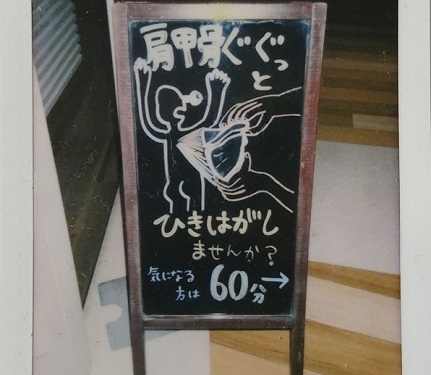 肩甲骨ぐぐっと
ひきはがし
ませんか?
気になる
方は
60分→